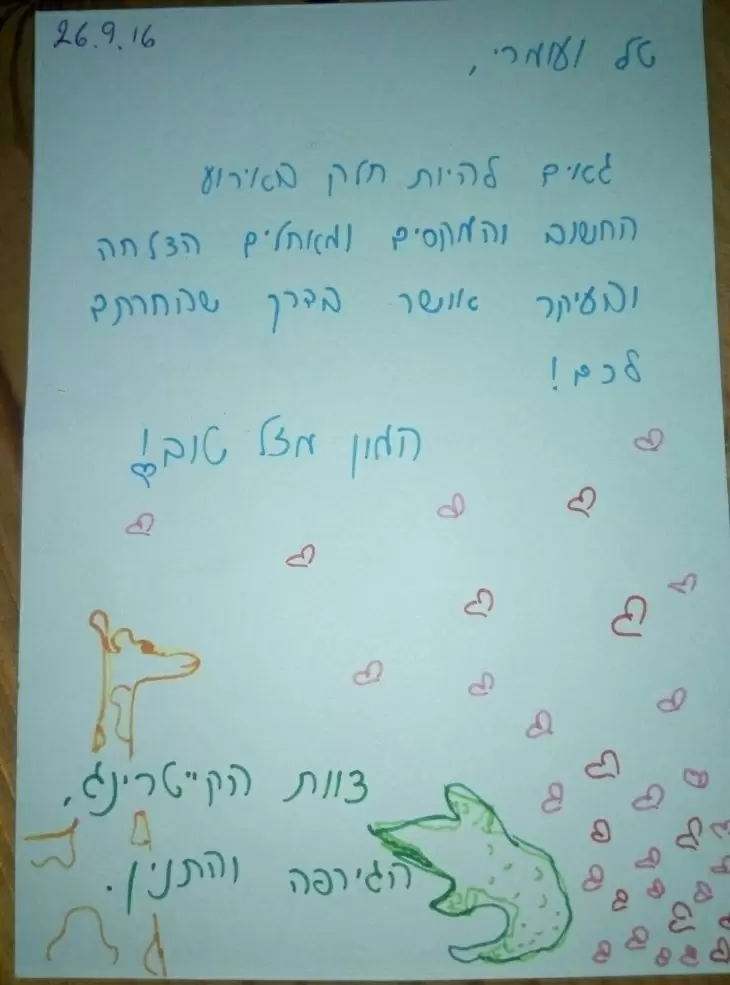 26.9.16
טל ועומרי,
גאים להיות חלק מאירוע
החשוב והמקסים ומאחלים הצלחה
ובעיקר אושר בדרך שבחרתם
לכם!
המון מזל טוב!
צוות הקייטרינג,
הגירפה והתנין.